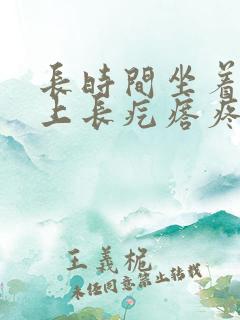 長時間坐着
上長疙瘩疼
王義桅
未经同意禁止转载